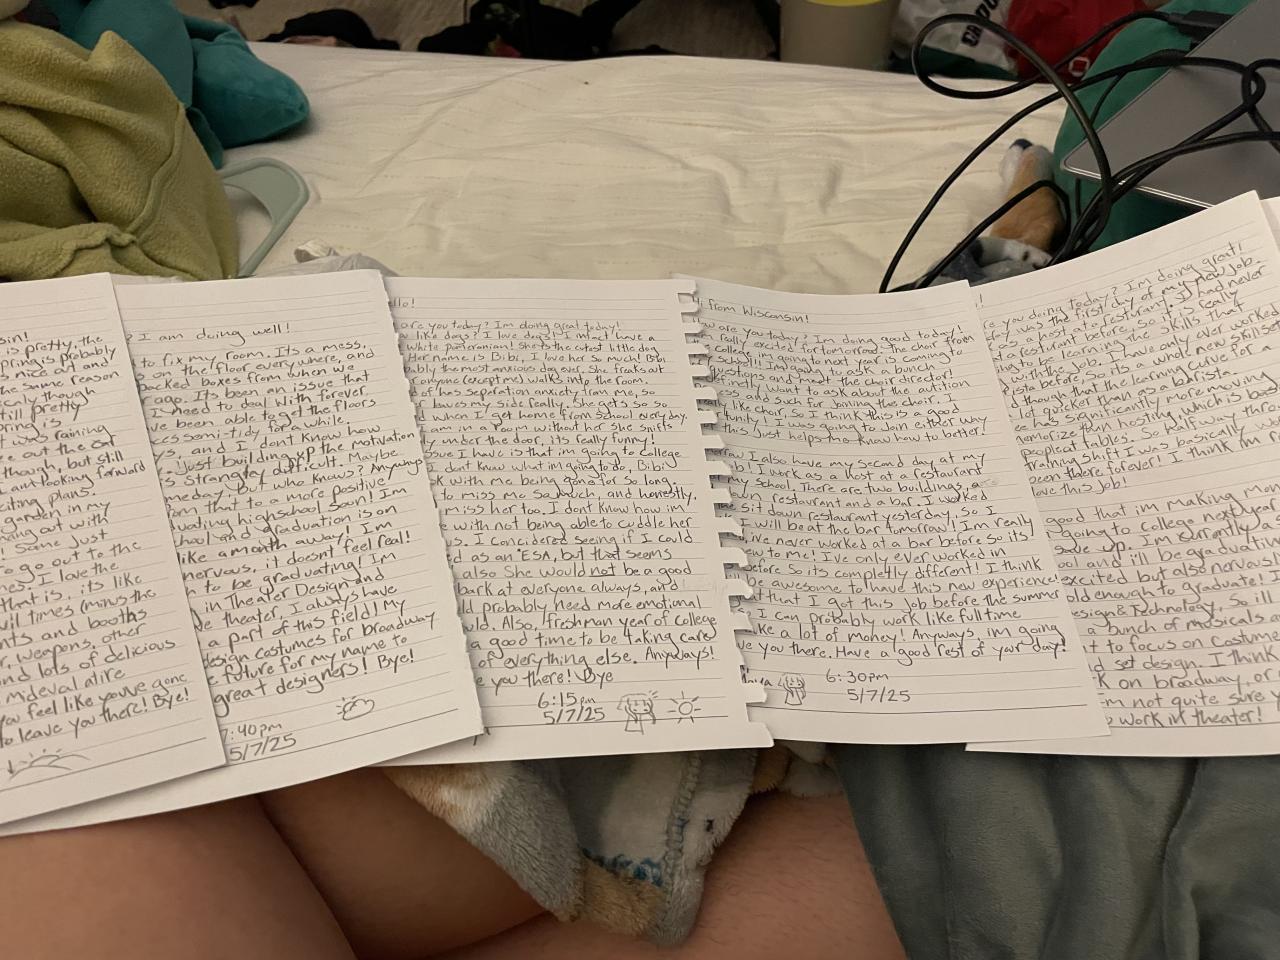 sin!
is pretty, the
pring is probably
s nice out and
the same reason
ically though
till pretty
pring is
t was raining
e out the cat
though, but still
I am looking forward
citing plans.
garden in my
nging out with
! Some just
o go out to the
nes. I love the
that is, its like
vil times (minus the
nts and booths
r, weapons, other
nd lots of delicious
mideval atire
you feel like youve gone
to leave you there! Bye!
? I am doing well!
to fix my room. Its a mess.
s on the floor everywhere, and
packed boxes from when we
ago. Its been an issue that
I need to deal with forever.
've been able to get the floors
ces semi-tidy for a while.
ys, and I dont know how
. Just building up the motivation
s strangley difficult. Maybe
meday, but who knows? Anyways
rom that to a more positive
uating highschool soon! Im
hool and graduation is on
like a month away! Im
nervous, it doesnt feel real!
h to be graduating! Im
in Theater Design and
ve theater, I always have
a part of this field! My
design costumes for broadway
e future for my name to
great designers! Bye!
7:40pm
5/7/25
ello!
are you today? Im doing great today!
u like dogs? I love dogs! I infact have a
white pomeranian! She is the cutest little dog
Her name is Bibi, I love her so much! Bibi
bably the most anxious dog ever. She freaks out
anyone (except me) walks into the room.
of has separation anxiety from me, so
leaves my side really. She gets so so
when I get home from school everyday.
I am in a room without her she sniffs
ly under the door, its really funny!
ssue I have is that im going to college
I dont know what im going to do, Bibi
k with me being gone for so long.
to miss me so much, and honestly,
miss her too. I dont know how im
e with not being able to cuddle her
us. I concidered seeing if I could
ed as an ESA, but that seems
also She would not be a good
bark at everyone always, and
ld probably need more emotional
uld. Also, freshman year of college
a good time to be taking care
of everything else. Anyways!
e you there! Bye
6:15pm
5/7/25
Hi from Wisconsin!
How are you today? Im doing good today!
m really excited for tomorrow. The choir from
college im going to next year is coming to
ool! Im going to ask a bunch
questions and meet the choir director!
definetly want to ask about the audition
ess and such for joining the choir. I
really like choir, so I think this is a good
tunity! I was going to join either way
this just helps me know how to better!
orrow I also have my second day at my
ob! I work as a host at a restaurant
my school. There are two buildings, a
own restaurant and a bar. I worked
he sit down restaurant yesterday, so I
I will be at the bar tomorrow! Im really
ive never worked at a bar before so its
ew to me! I've only ever worked in
before so its completly different! I think
l be awesome to have this new experience!
at that I got this job before the summer
I can probably work like full time
ake a lot of money! Anyways, im going
ve you there. Have a good rest of your day!
6:30pm
5/7/25
!
re you doing today? Im doing great!
ay was the first day of my new job.
as a host at a resturant. I had never
at a resturant before, so it is really
ing to be learning the skills that
with the job. I have only ever worked
rista before, so its a whole new skillset
d though that the learning curve for a
lot quicker than as a barista.
e has significantly more moving
memorize than hosting, which is bas
people at tables. So halfway throu
training shift I was basically
been there forever! I think im
love this job!
good that im making mon
going to college next year
save up. Im currently a
ool and I'll be graduatin
excited but also nervous!
old enough to graduate! I
esign & Technology, so ill
a bunch of musicals a
t to focus on costume
d set design. I think
k on broadway, or
m not quite sure y
o work in theater!